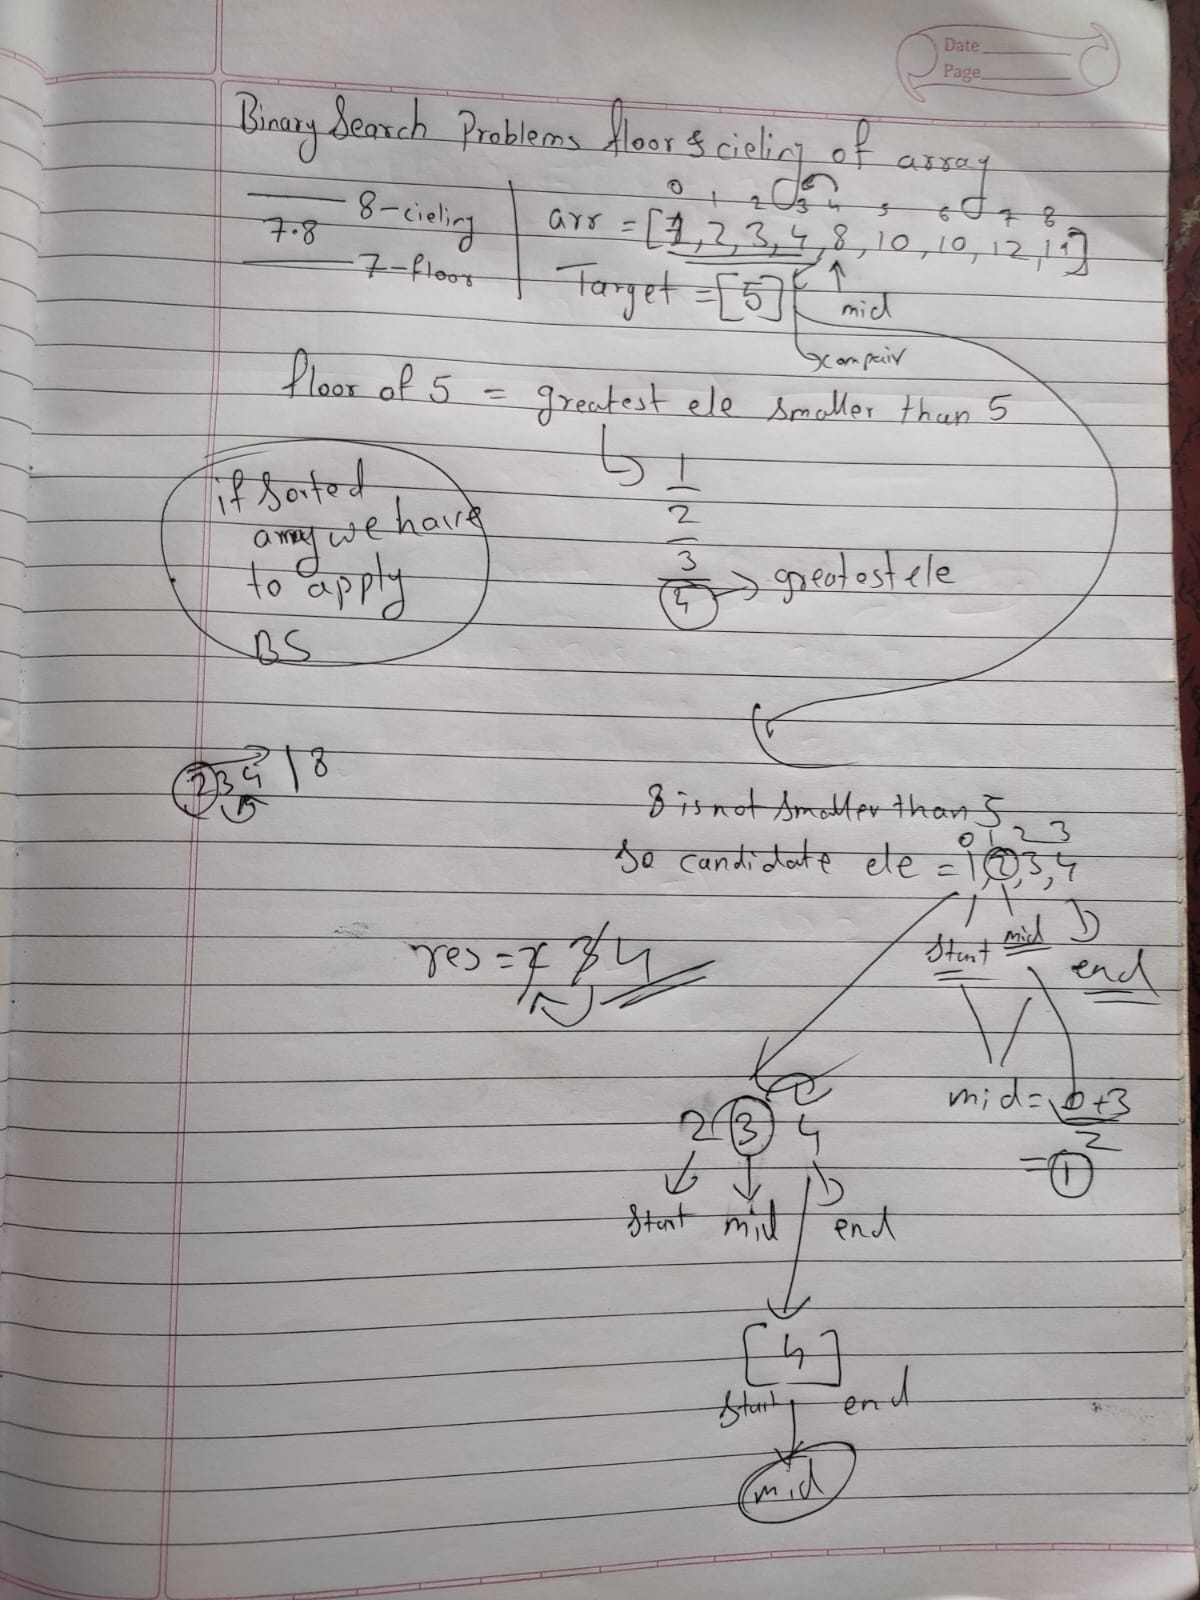 Date
Page
Binary Search Problems floor & cieling of array
8-cieling
7.8
7-floor
0 1 2 3 4 5 6 7 8
arr = [1,2,3,4,8,10,10,12,19]
Target = [5]
mid
compair
floor of 5 = greatest ele smaller than 5
1
2
3
4 → greatest ele
if Sorted
array we have
to apply
BS
2 3 4 | 8
8 is not smaller than 5
0 1 2 3
So candidate ele = 1,2,3,4
start mid end
res = 2 3 4
mid = 0+3
2
= 1
2 3 4
start mid end
[4]
start end
mid